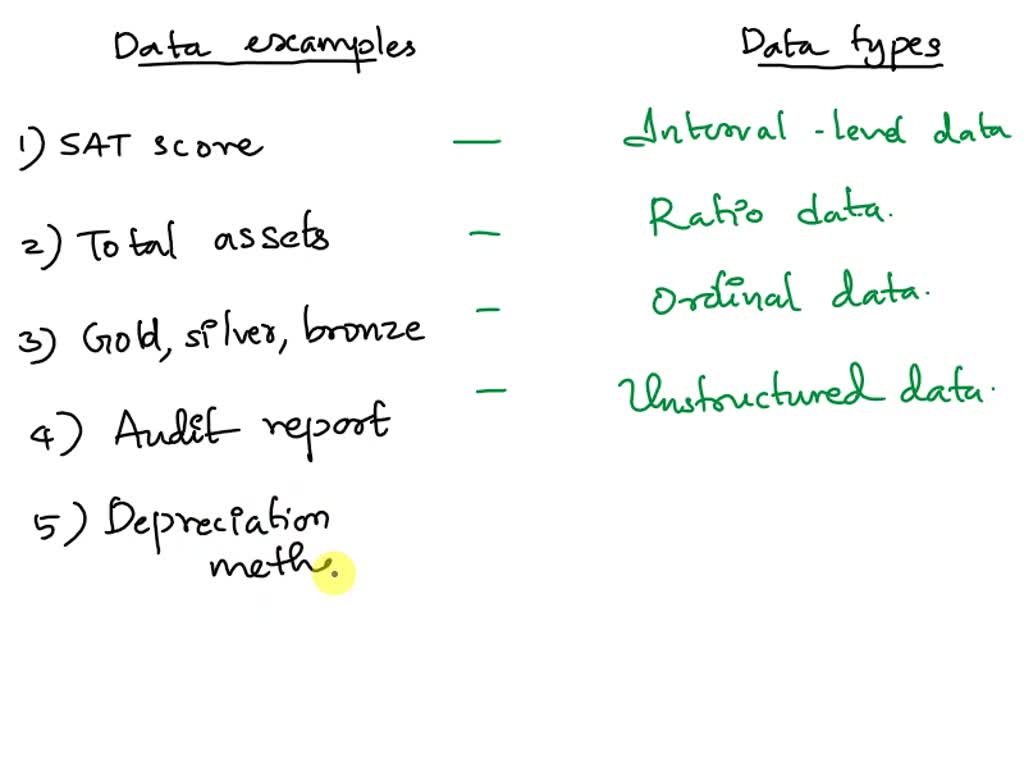 Data examples Data types
1) SAT score — Interval-level data
2) Total assets — Ratio data.
3) Gold, silver, bronze — Ordinal data.
4) Audit report — Unstructured data.
5) Depreciation
meth